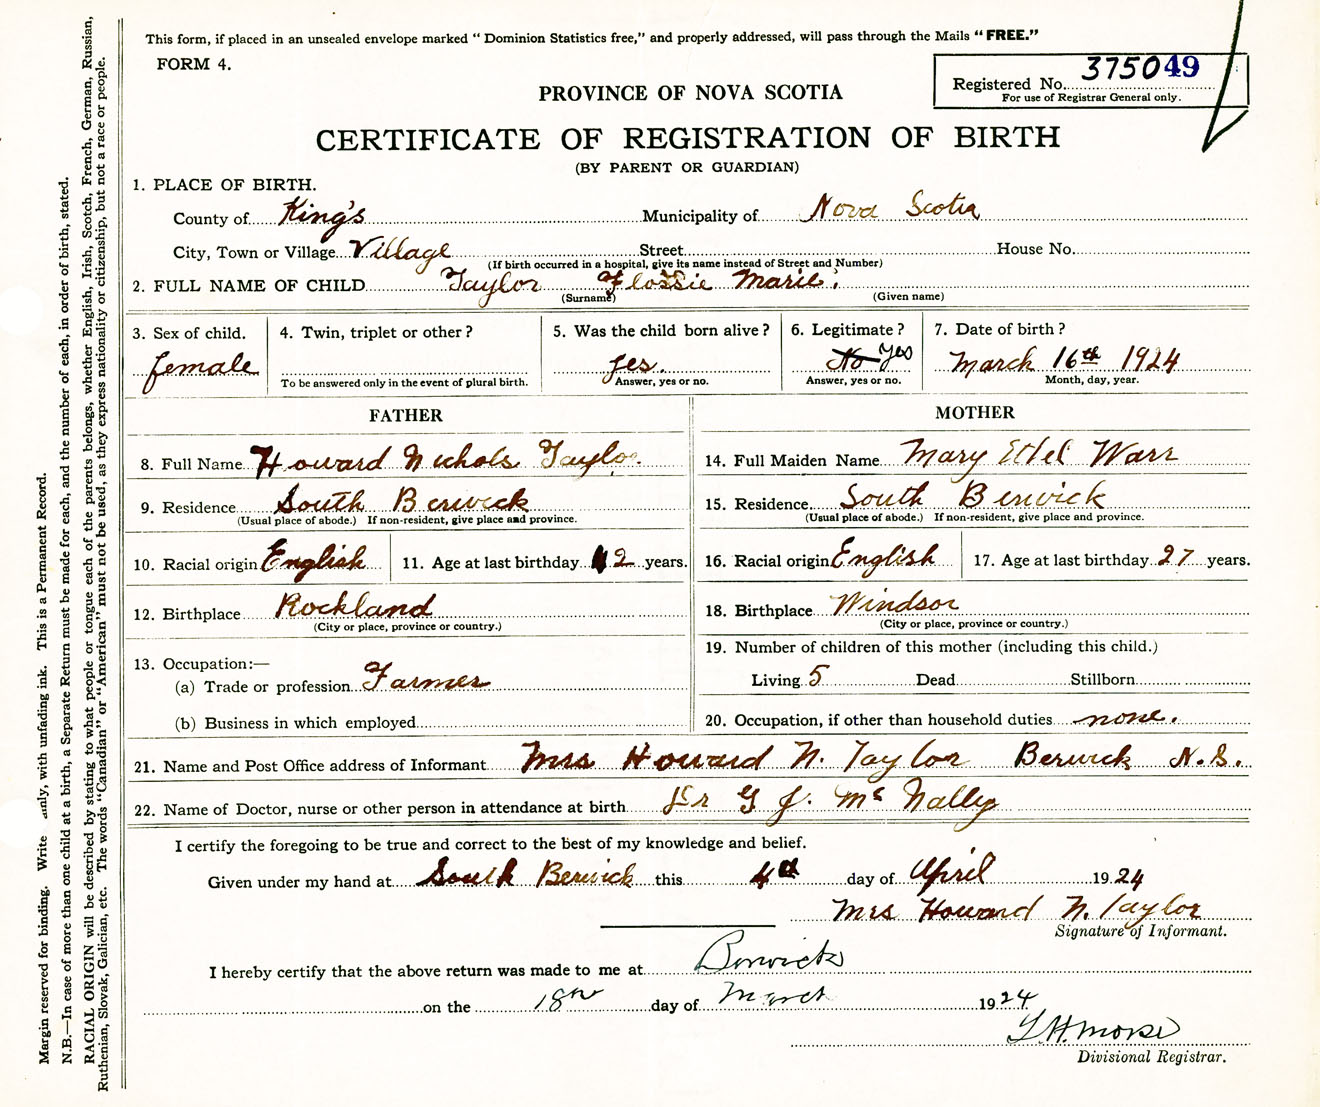 This form, if placed in an unsealed envelope marked “ Dominion Statistics free,” and properly addressed, will pass through the Mails “ FREE.”
FORM 4.
Registered No. 375049
For use of Registrar General only.
PROVINCE OF NOVA SCOTIA
CERTIFICATE OF REGISTRATION OF BIRTH
(BY PARENT OR GUARDIAN)
1. PLACE OF BIRTH.
County of King's Municipality of Nova Scotia
City, Town or Village Village Street House No.
(If birth occurred in a hospital, give its name instead of Street and Number)
2. FULL NAME OF CHILD Taylor Flossie Marie.
(Surname) (Given name)
3. Sex of child. 4. Twin, triplet or other ? 5. Was the child born alive ? 6. Legitimate ? 7. Date of birth ?
female yes. No Yes March 16th 1924
To be answered only in the event of plural birth. Answer, yes or no. Answer, yes or no. Month, day, year.
FATHER MOTHER
8. Full Name Howard Nichols Taylor 14. Full Maiden Name Mary Ethel Warr
9. Residence South Berwick 15. Residence South Berwick
(Usual place of abode.) If non-resident, give place and province. (Usual place of abode.) If non-resident, give place and province.
10. Racial origin English 11. Age at last birthday 42 years. 16. Racial origin English 17. Age at last birthday 27 years.
12. Birthplace Rockland 18. Birthplace Windsor
(City or place, province or country.) (City or place, province or country.)
13. Occupation:— 19. Number of children of this mother (including this child.)
(a) Trade or profession Farmer Living 5 Dead Stillborn
(b) Business in which employed 20. Occupation, if other than household duties none.
21. Name and Post Office address of Informant Mrs Howard N. Taylor Berwick N.S.
22. Name of Doctor, nurse or other person in attendance at birth Dr G J. Mc Nally
I certify the foregoing to be true and correct to the best of my knowledge and belief.
Given under my hand at South Berwick this 4th day of April 1924
Mrs Howard N. Taylor
Signature of Informant.
I hereby certify that the above return was made to me at Berwick
on the 18th day of March 1924
Divisional Registrar.
Margin reserved for binding. Write only, with unfading ink. This is a Permanent Record.
N.B.—In case of more than one child at a birth, a Separate Return must be made for each, and the number of each, in order of birth, stated.
RACIAL ORIGIN will be described by stating to what people or tongue each of the parents belongs, whether English, Irish, Scotch, French, German, Russian,
Ruthenian, Slovak, Galician, etc. The words “Canadian” or “American” must not be used, as they express nationality or citizenship, but not a race or people.